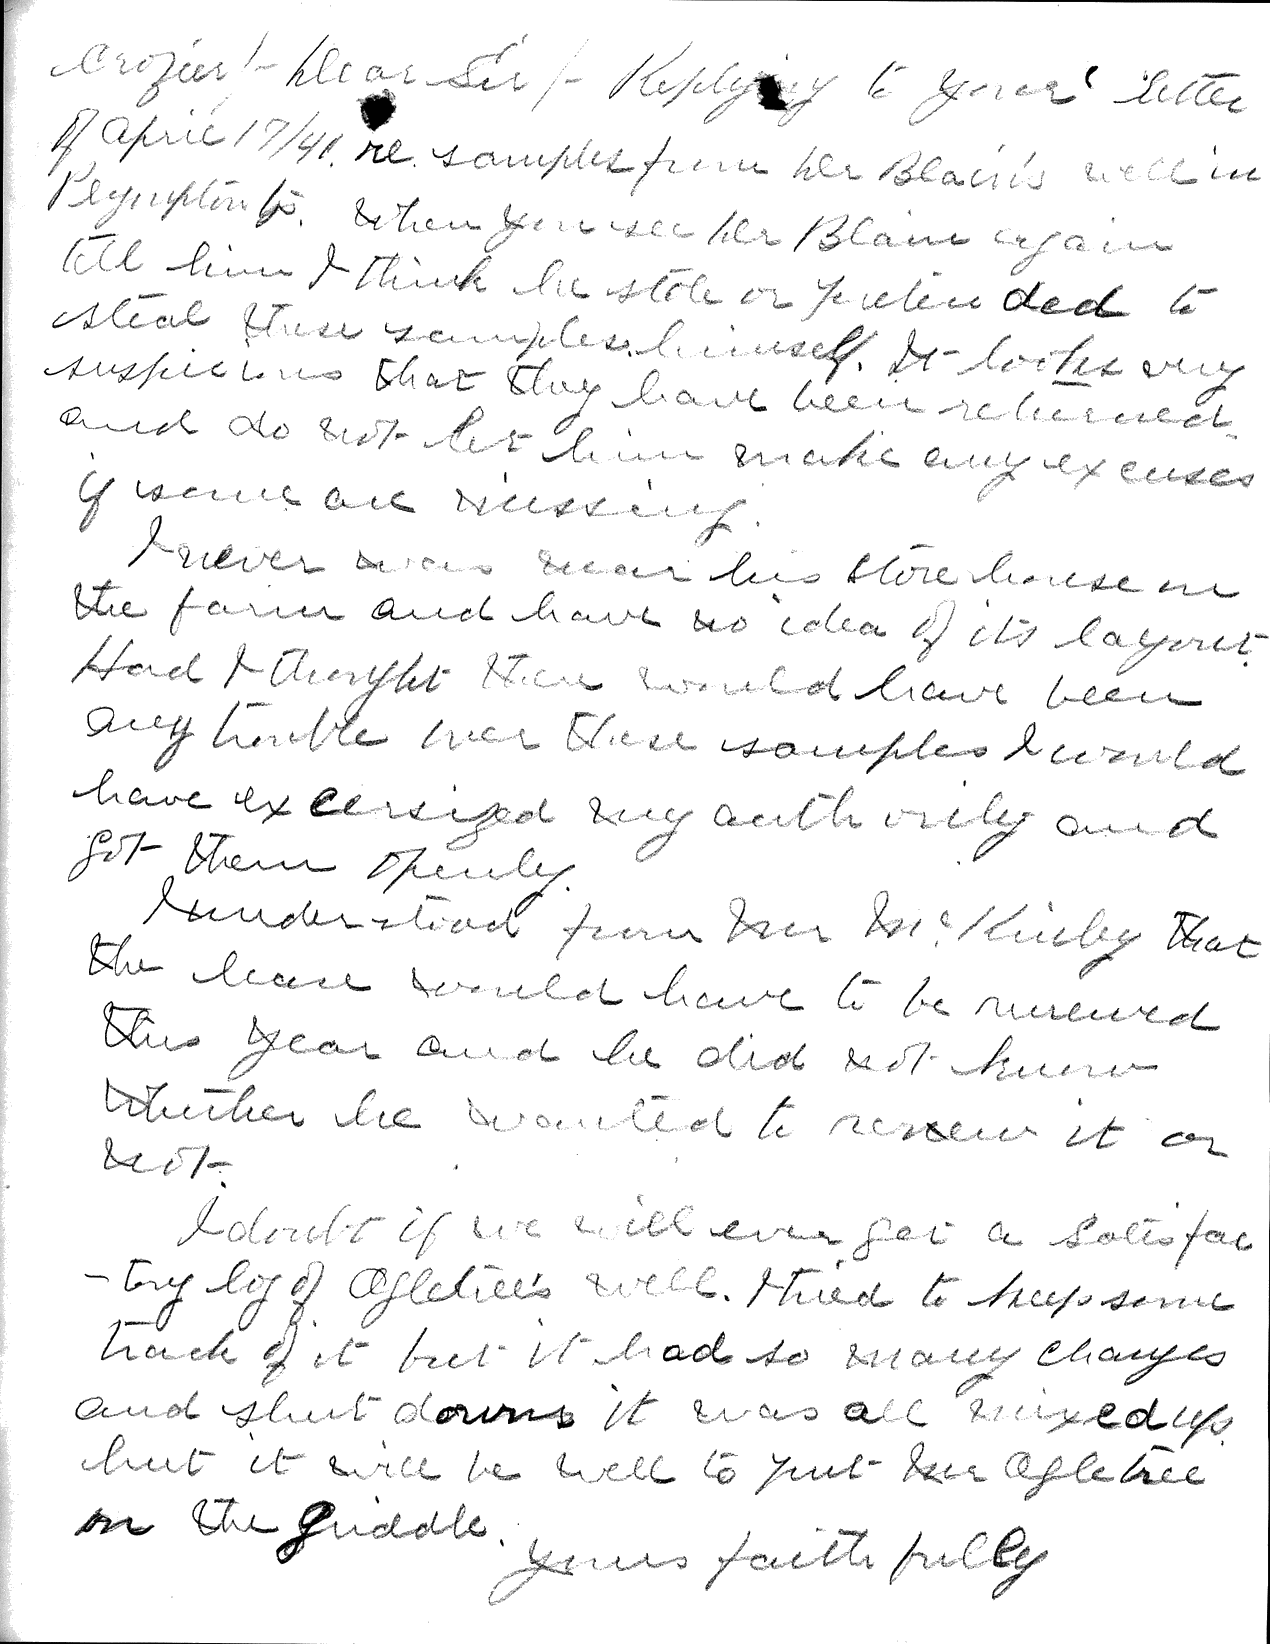 Crozier/- Dear Sir/- Replying to your letter
of April 17/41. re. samples from Mr Blain's well in
Plympton tp. When you see Mr Blain again
tell him I think he stole or pretended to
steal these samples himself. It looks very
suspicious that they have been returned
and do not let him make any excuses
if some are missing.
I never was near his store house on
the farm and have no idea of its layout.
Had I thought there would have been
any trouble over these samples I would
have excersized my authority and
got them openly.
I understood from Mr McKinley that
the lease would have to be renewed
this year and he did not know
whether he wanted to renew it or
not.
I doubt if we will ever get a satisfac
-tory log of Ogletree's well. I tried to keep some
track of it but it had so many changes
and shut downs it was all mixed up.
but it will be well to put Mr Ogletree
on the griddle.
Yours faithfully